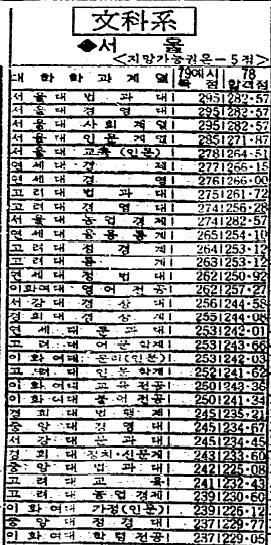 文科系
◆서울
<지망가능권은-5점>
대학학과계열 79예시득점 78합격점
서울대법과대 295 282·57
서울대경영대 295 282·57
서울대사회계열 295 282·57
서울대인문계열 285 271·87
서울대교육(인문) 278 264·51
연세대경 277 266·15
연세대 276 266·00
고려대법과대 275 261·72
고려대경영대 274 256·28
서울대농업경제 274 282·57
연세대응용통계 265 254·10
고려대정경계 264 253·12
고려대통계 263 253·12
연세대정법대 262 250·92
이화여대영어전공 262 257·27
서강대경상대 256 244·58
경희대 255 244·08
연세대문과대 253 242·01
고려대어문학계 253 243·66
이화여대문리(인문) 253 242·03
고려대인문학계 252 241·62
이화여대교육전공 250 243·36
이화여대불어전공 250 241·34
경희대법행계 245 235·21
중앙대경영대 245 234·67
서강대문과대 245 234·45
경희대정치·신문계 243 233·60
중앙대법과대 242 225·08
고려대교육 241 232·43
고려대농업경제 239 230·60
이화여대가정(인문) 239 226·12
중앙대정경대 237 229·77
이화여대학텀전공 237 229·05